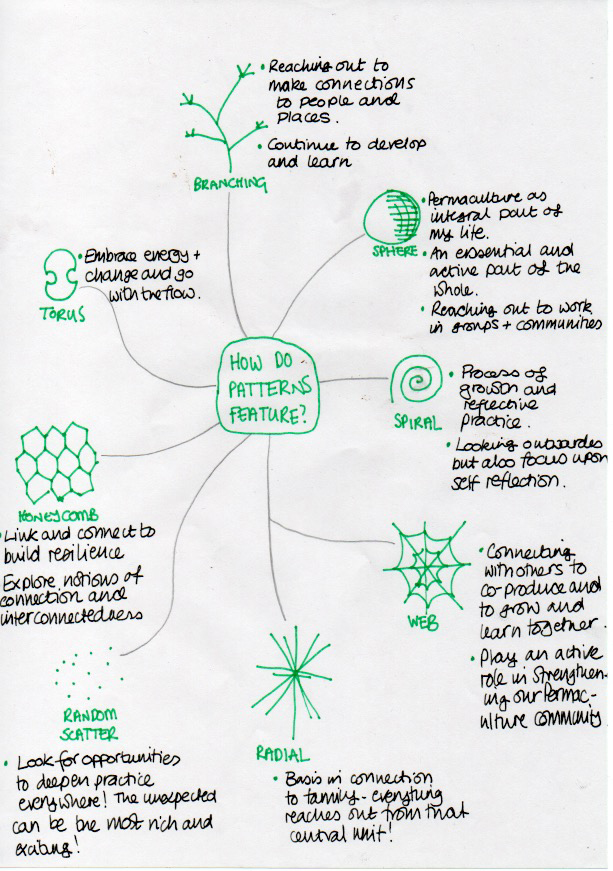 • Reaching out to
make connections
to people and
places.
• Continue to develop
and learn
BRANCHING
• Permaculture as
integral part of
my life.
• An essential and
active part of the
whole.
• Reaching out to work
in groups + communities
SPHERE
• Embrace energy +
change and go
with the flow.
TORUS
HOW DO
PATTERNS
FEATURE?
• Process of
growth and
reflective
practice.
• Looking outwardes
but also focus upon
self reflection.
SPIRAL
HONEYCOMB
• Link and connect to
build resilience
Explore notions of
connection and
interconnectedness
WEB
• Connecting
with others to
co-produce and
to grow and
learn together.
• Play an active
role in strengthen-
ing our Permac-
ulture community
RANDOM
SCATTER
• Look for opportunities
to deepen practice
everywhere! The unexpected
can be the most rich and
exciting!
RADIAL
• Basis in connection
to family - everything
reaches out from that
central unit!